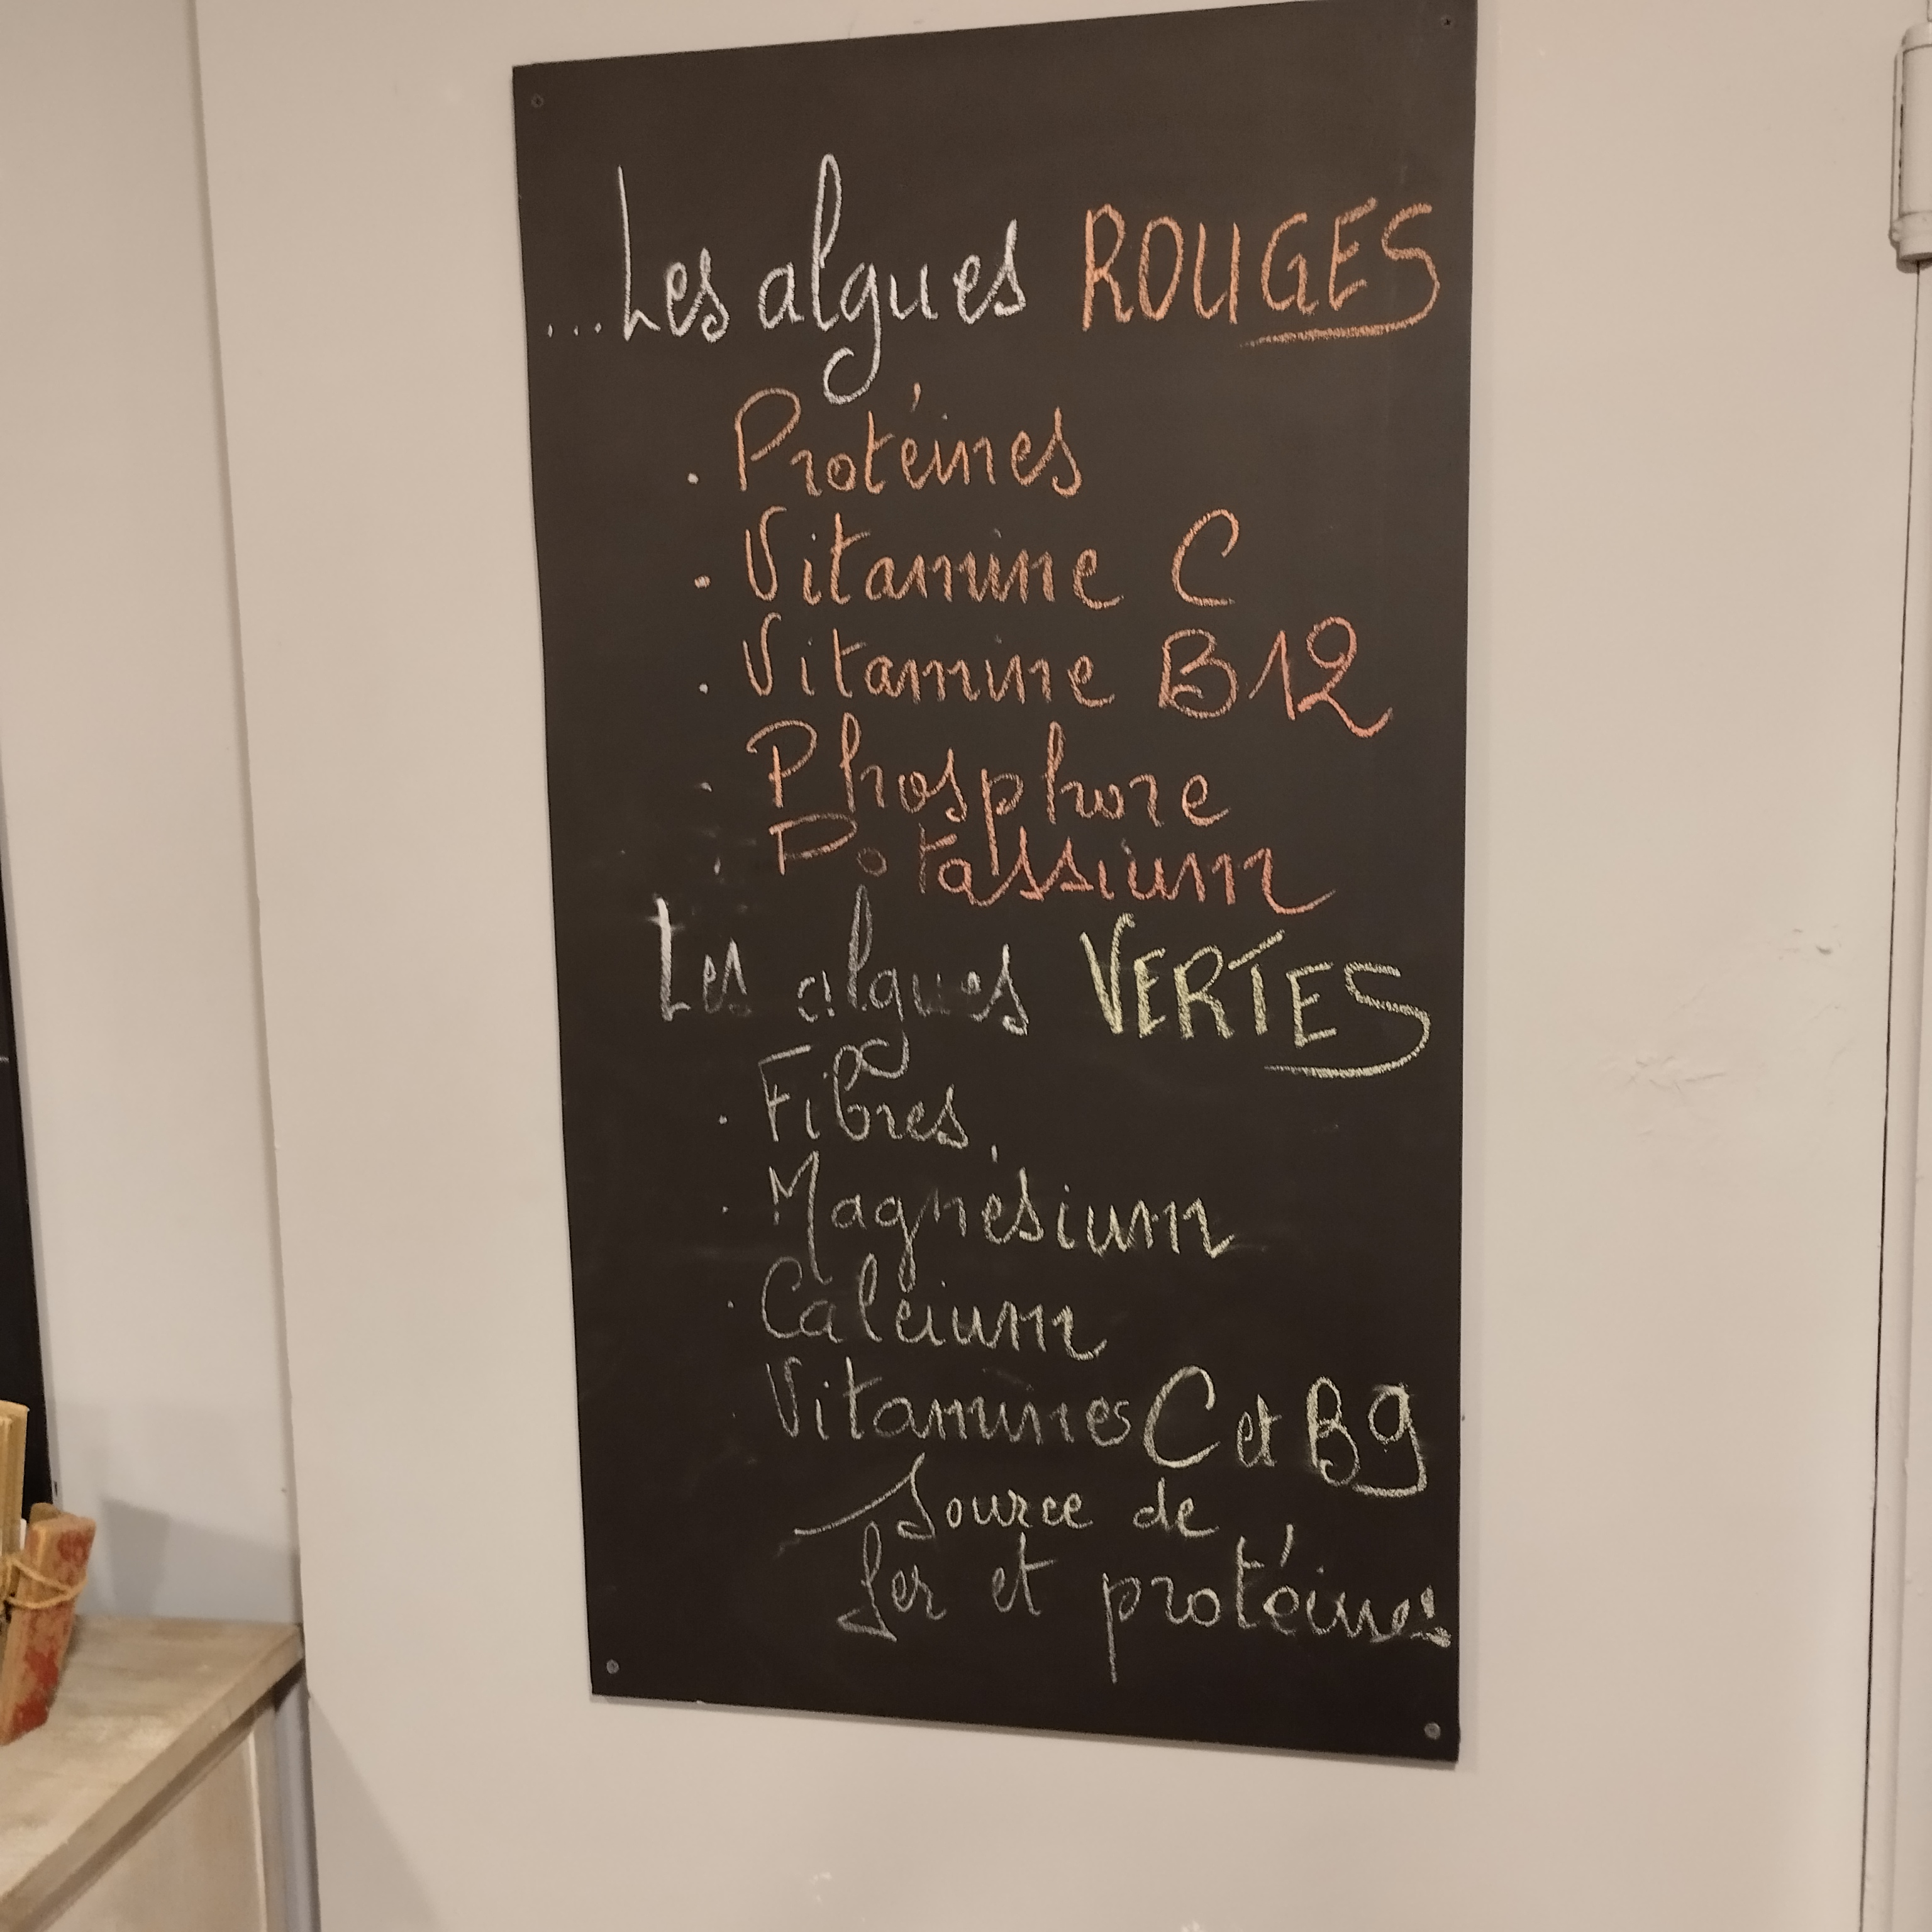 ...Les algues ROUGES
. Protéines
. Vitamine C
. Vitamine B12
. Phosphore
. Potassium
Les algues VERTES
. Fibres
. Magnésium
. Calcium
. Vitamines C et B9
Source de
fer et protéines